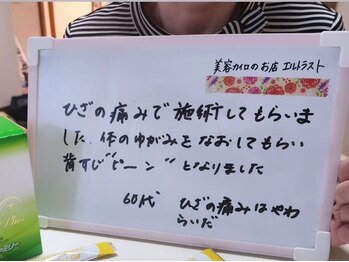 美容カイロのお店 エルトラスト
ひざの痛みで施術してもらいま
した。体のゆがみをなおしてもらい
背すじ"ピーン"となりました
60代 ひざの痛みはやわ
らいだ